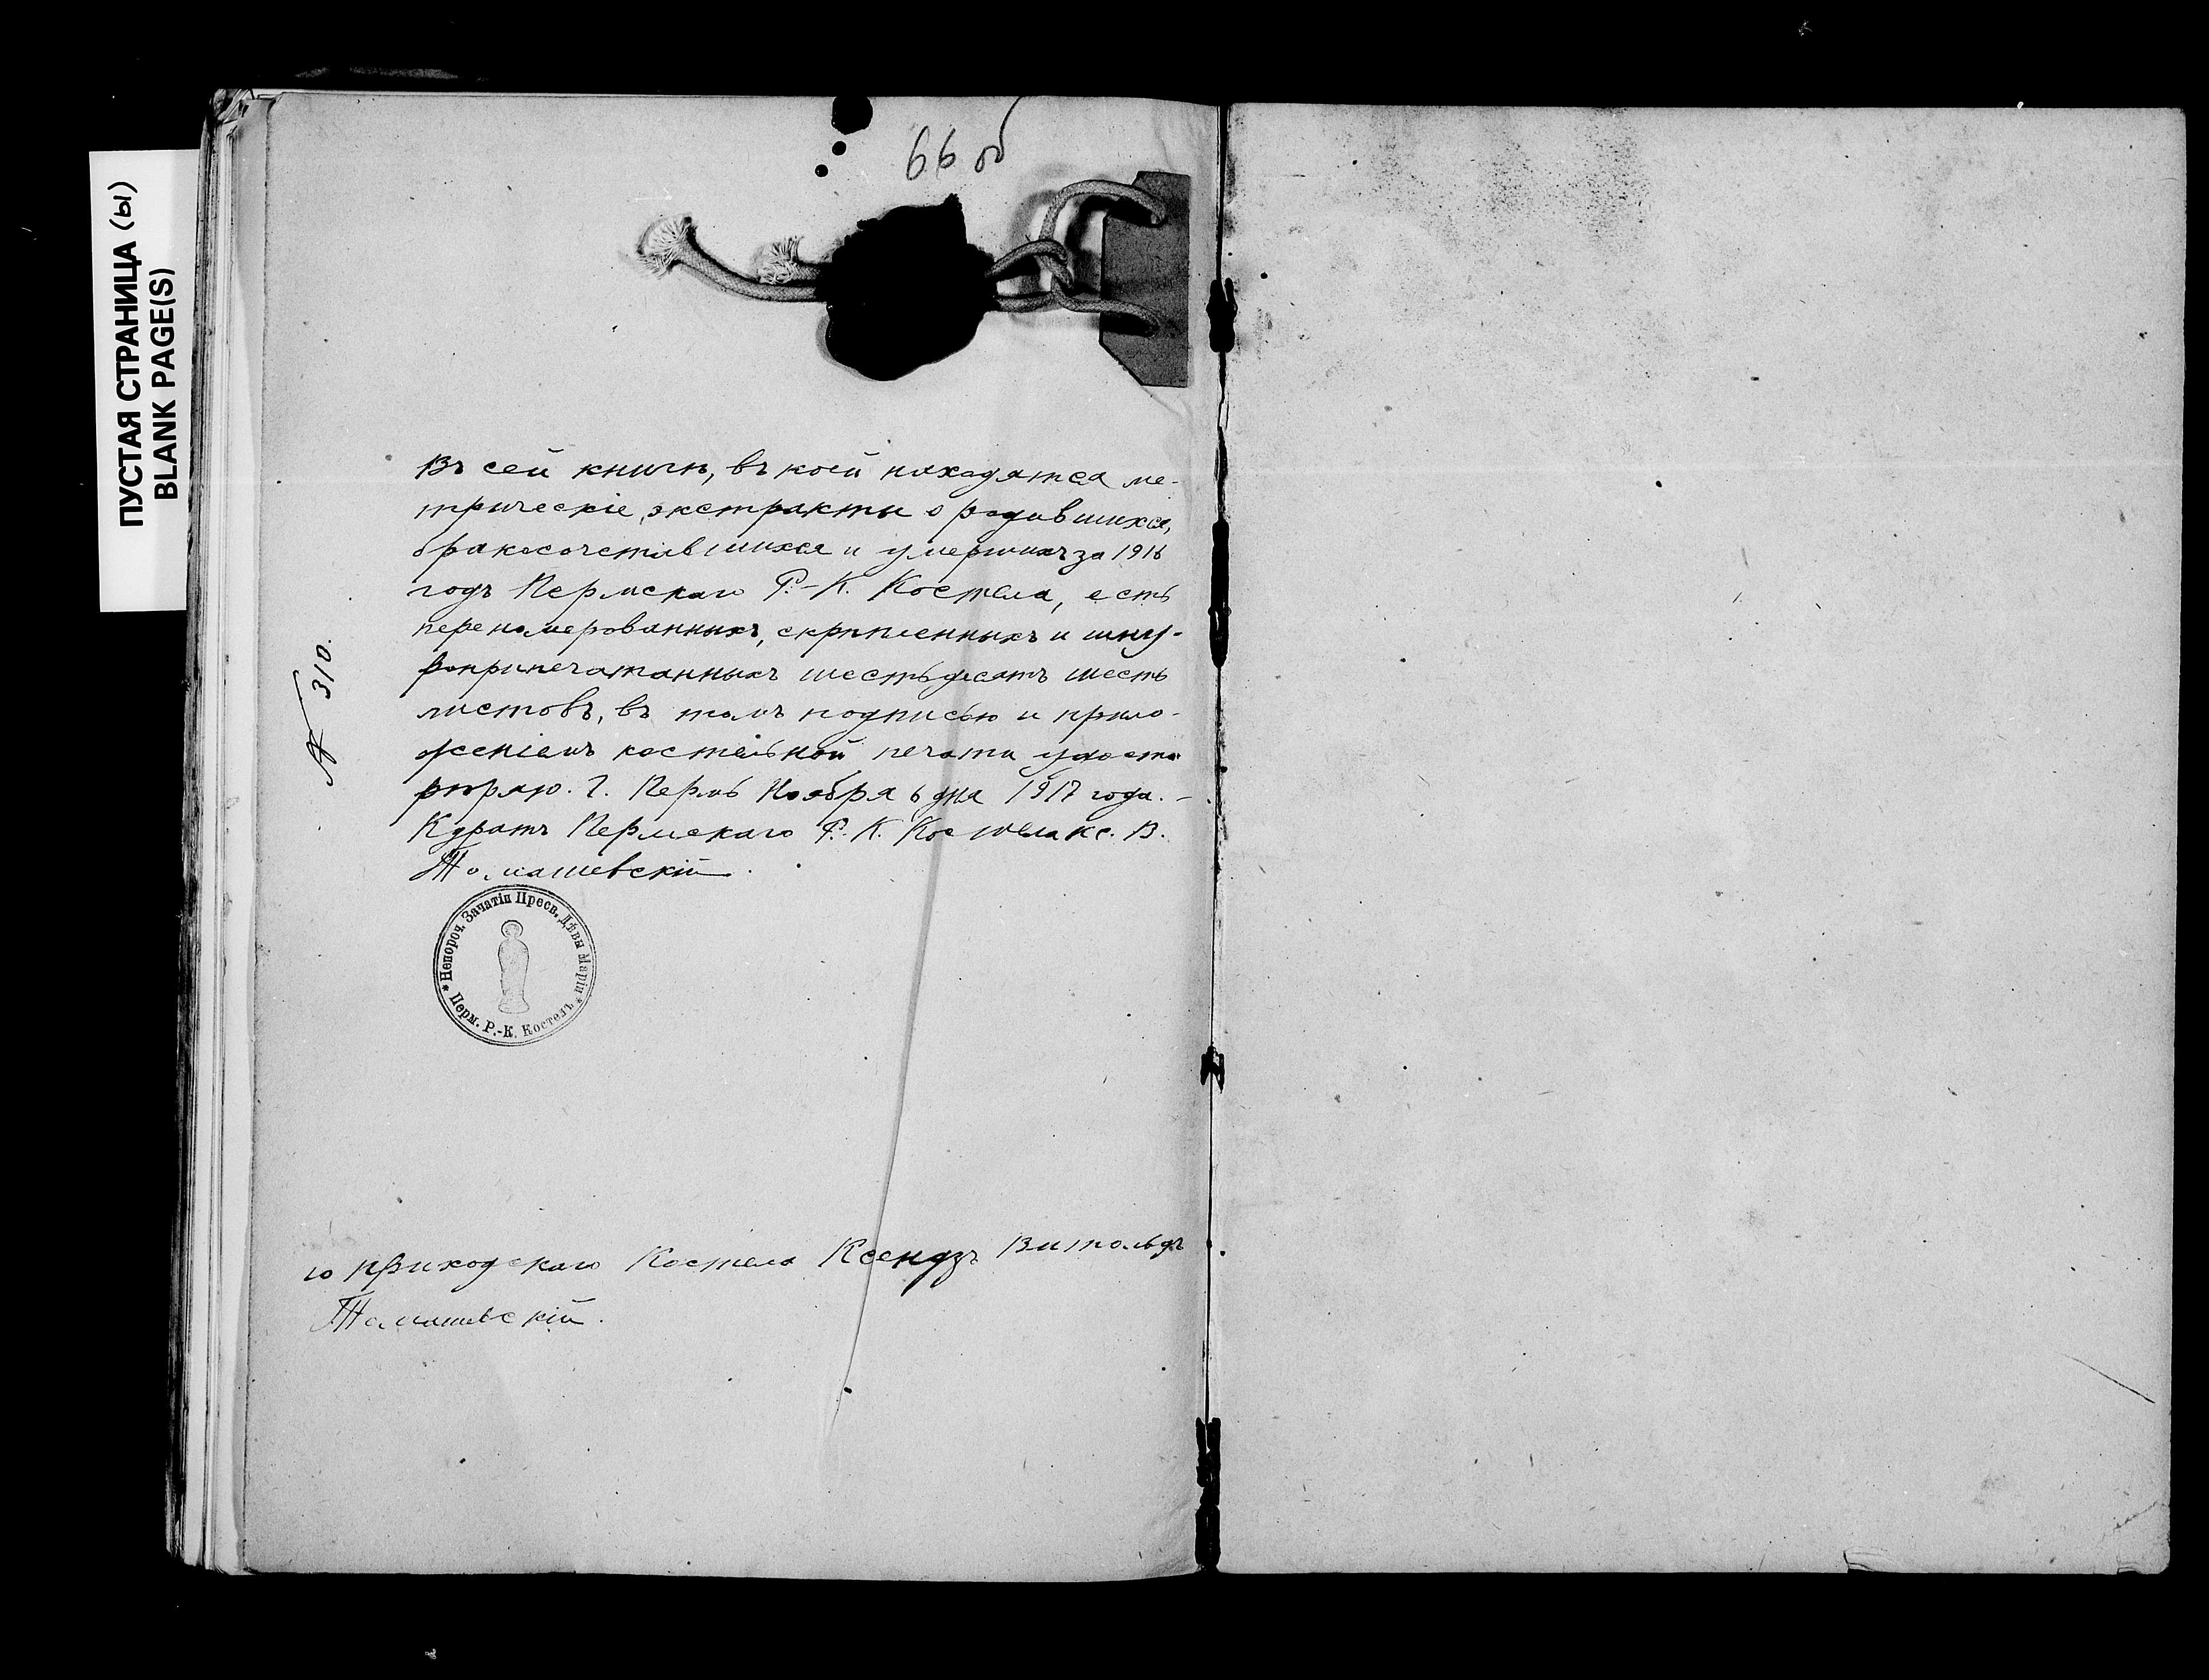 66 об
ПУСТАЯ СТРАНИЦА (Ы)
BLANK PAGE(S)
Въ сей книгѣ, въ коей находятся ме-
трическіе экстракты о родившихся,
бракосочетавшихся и умершихъ за 1916
годъ Пермскаго Р.-К. Костела, есть
перенумерованныхъ, скрѣпленныхъ и шну-
роприпечатанныхъ шестьдесятъ шесть
листовъ, въ томъ подписью и прило-
женіемъ костельной печати удосто
вѣряю. Г. Пермь Ноября 6 дня 1917 года. -
Куратъ Пермскаго Р.-К. Костела кс. В.
Томашевскій.
№ 310.
* Непороч. Зачатія Пресв. Дѣвы Маріи *
Перм. Р.-К. Костелъ
го приходскаго Костела Ксендзъ Витольдъ
Томашевскій.